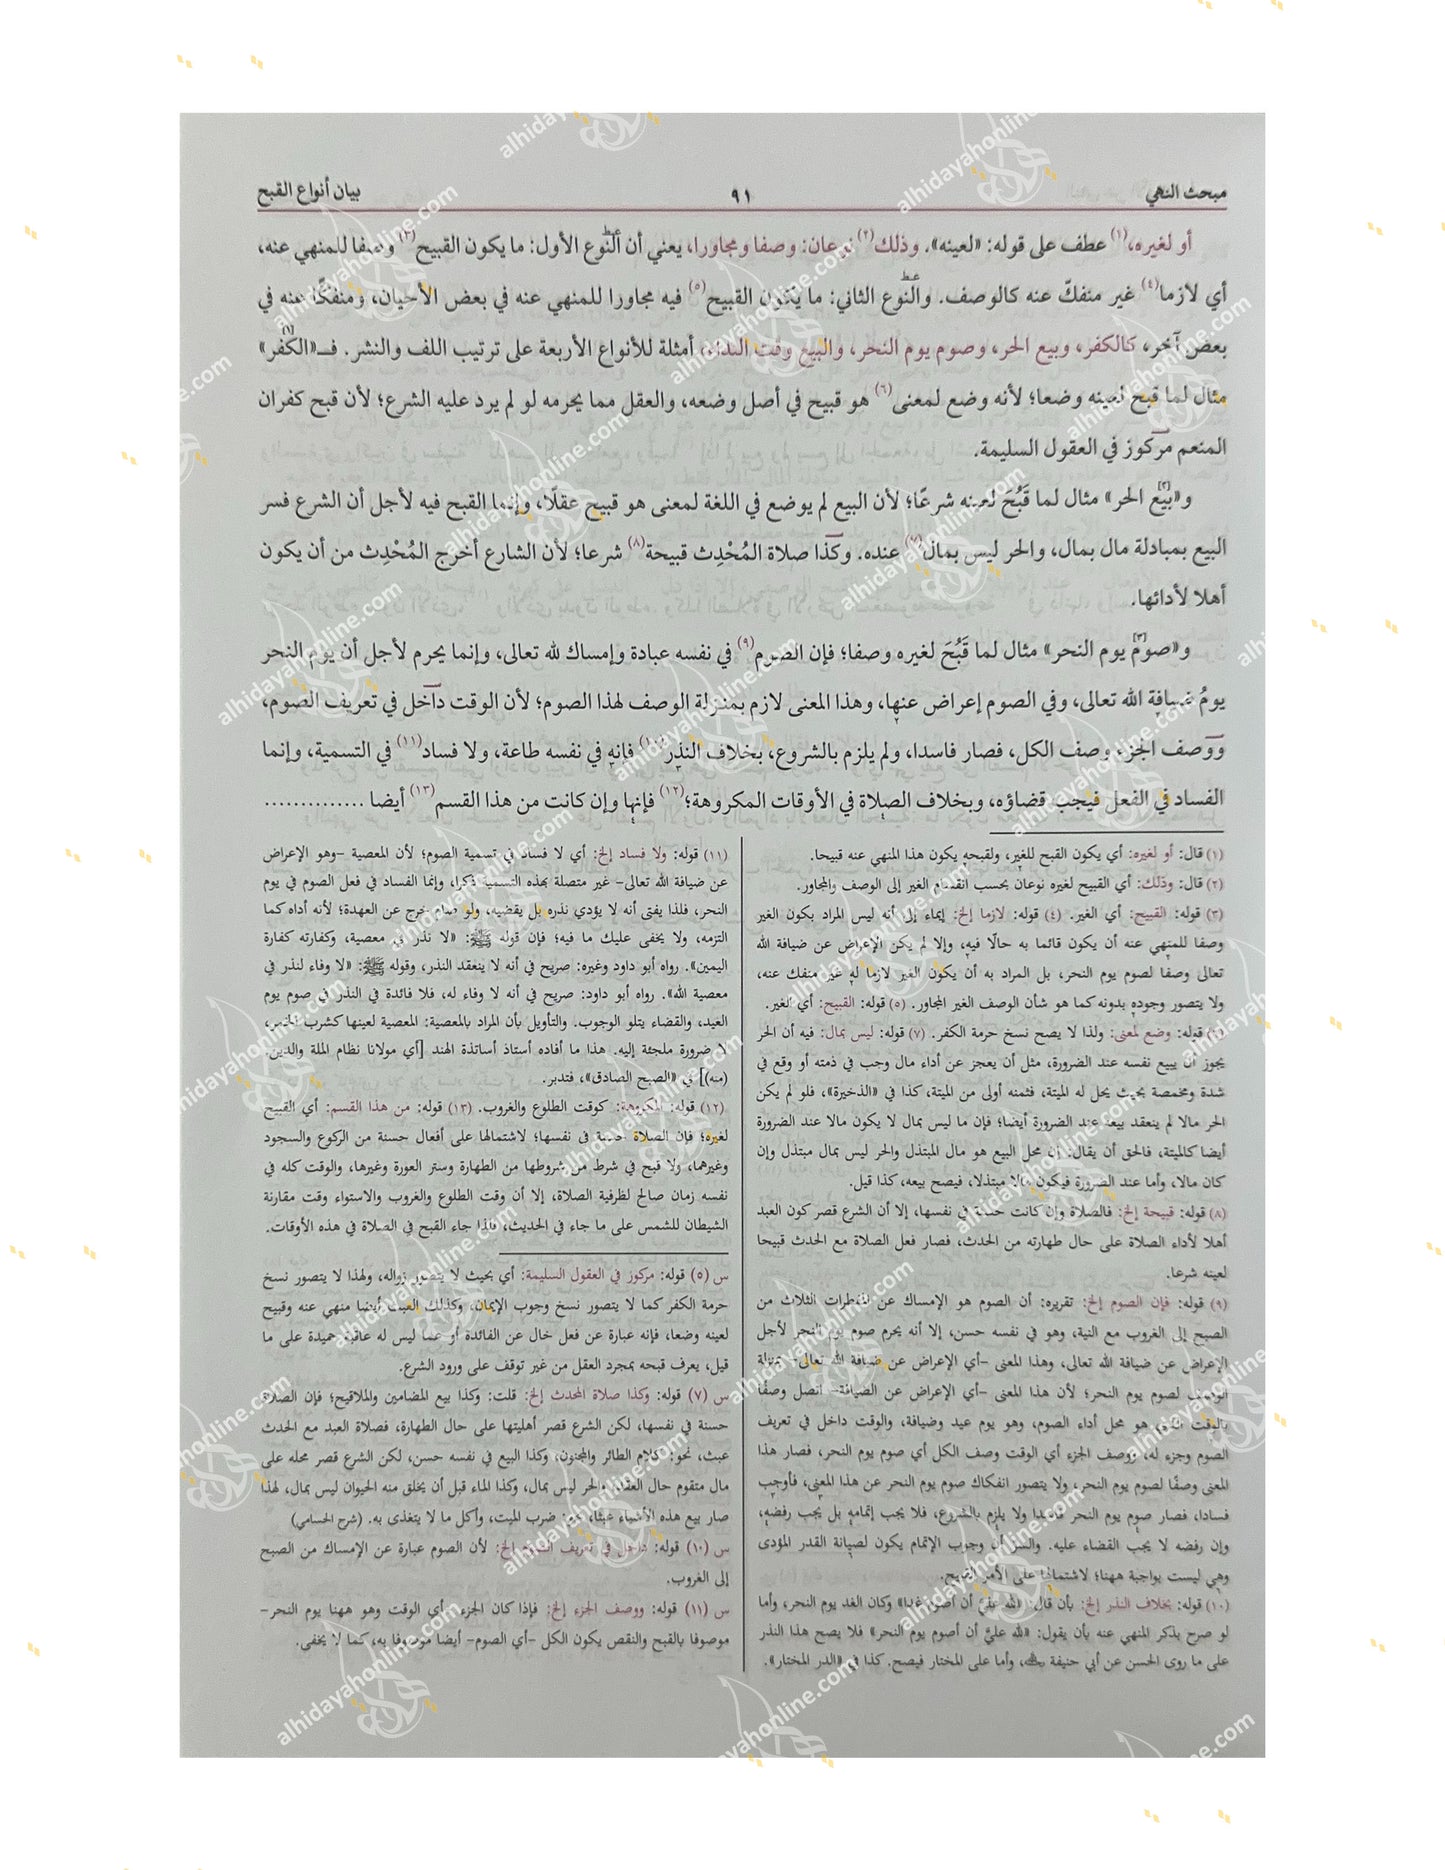 مبحث النهي
٩١
بيان أنواع القبح
أو لغيره،(١) عطف على قوله: «لعينه». وذلك(٢) نوعان: وصفا ومجاورا، يعني أن النوع الأول: ما يكون القبيح(٣) وصفا للمنهي عنه،
أي لازما(٤) غير منفكّ عنه كالوصف. والنوع الثاني: ما يكون القبيح(٥) فيه مجاورا للمنهي عنه في بعض الأحيان، ومنفكًّا عنه في
بعض آخر، كالكفر، وبيع الحر، وصوم يوم النحر، والبيع وقت النداء، أمثلة للأنواع الأربعة على ترتيب اللف والنشر. فـ«الكفر»[١]
مثال لما قبح لعينه وضعا؛ لأنه وضع لمعنى(٦) هو قبيح في أصل وضعه، والعقل مما يحرمه لو لم يرد عليه الشرع؛ لأن قبح كفران
المنعم مركوز في العقول السليمة.
و«بيع[٢] الحر» مثال لما قَبُحَ لعينه شرعًا؛ لأن البيع لم يوضع في اللغة لمعنى هو قبيح عقلًا، وإنما القبح فيه لأجل أن الشرع فسر
البيع بمبادلة مال بمال، والحر ليس بمال(٧) عنده. وكذا صلاة المُحْدِث قبيحة(٨) شرعا؛ لأن الشارع أخرج المُحْدِث من أن يكون
أهلا لأدائها.
و«صوم[٣] يوم النحر» مثال لما قَبُحَ لغيره وصفا؛ فإن الصوم(٩) في نفسه عبادة وإمساك لله تعالى، وإنما يحرم لأجل أن يوم النحر
يومُ ضيافة الله تعالى، وفي الصوم إعراض عنها، وهذا المعنى لازم بمنزلة الوصف لهذا الصوم؛ لأن الوقت داخل في تعريف الصوم،
ووصف الجزء وصف الكل، فصار فاسدا، ولم يلزم بالشروع، بخلاف النذر(١٠) فإنه في نفسه طاعة، ولا فساد(١١) في التسمية، وإنما
الفساد في الفعل فيجب قضاؤه، وبخلاف الصلاة في الأوقات المكروهة؛(١٢) فإنها وإن كانت من هذا القسم(١٣) أيضا ..............
(١) قال: أو لغيره: أي يكون القبح للغير، ولقبحه يكون هذا المنهي عنه قبيحا.
(٢) قال: وذلك: أي القبيح لغيره نوعان بحسب انقسام الغير إلى الوصف والمجاور.
(٣) قوله: القبيح: أي الغير. (٤) قوله: لازما إلخ: إيماء إلى أنه ليس المراد بكون الغير
وصفا للمنهي عنه أن يكون قائما به حالّا فيه، وإلا لم يكن الإعراض عن ضيافة الله
تعالى وصفا لصوم يوم النحر، بل المراد به أن يكون الغير لازما له غير منفك عنه،
ولا يتصور وجوده بدونه كما هو شأن الوصف الغير المجاور. (٥) قوله: القبيح: أي الغير.
(٦) قوله: وضع لمعنى: ولذا لا يصح نسخ حرمة الكفر. (٧) قوله: ليس بمال: فيه أن الحر
يجوز أن يبيع نفسه عند الضرورة، مثل أن يعجز عن أداء مال وجب في ذمته أو وقع في
شدة ومخمصة بحيث يحل له الميتة، فثمنه أولى من الميتة، كذا في «الذخيرة»، فلو لم يكن
الحر مالا لم ينعقد بيعه عند الضرورة أيضا؛ فإن ما ليس بمال لا يكون مالا عند الضرورة
أيضا كالميتة، فالحق أن يقال: إن محل البيع هو مال المبتذل والحر ليس بمال مبتذل وإن
كان مالا، وأما عند الضرورة فيكون مالا مبتذلا، فيصح بيعه، كذا قيل.
(٨) قوله: قبيحة إلخ: فالصلاة وإن كانت حسنة في نفسها، إلا أن الشرع قصر كون العبد
أهلا لأداء الصلاة على حال طهارته من الحدث، فصار فعل الصلاة مع الحدث قبيحا
لعينه شرعا.
(٩) قوله: فإن الصوم إلخ: تقريره: أن الصوم هو الإمساك عن المفطرات الثلاث من
الصبح إلى الغروب مع النية، وهو في نفسه حسن، إلا أنه يحرم صوم يوم النحر لأجل
الإعراض عن ضيافة الله تعالى، وهذا المعنى –أي الإعراض عن ضيافة الله تعالى– بمنزلة
الوصف لصوم يوم النحر؛ لأن هذا المعنى –أي الإعراض عن الضيافة– اتصل وصفًا
بالوقت الذي هو محل أداء الصوم، وهو يوم عيد وضيافة، والوقت داخل في تعريف
الصوم وجزء له، ووصف الجزء أي الوقت وصف الكل أي صوم يوم النحر، فصار هذا
المعنى وصفًا لصوم يوم النحر، ولا يتصور انفكاك صوم يوم النحر عن هذا المعنى، فأوجب
فسادا، فصار صوم يوم النحر فاسدا ولا يلزم بالشروع، فلا يجب إتمامه بل يجب رفضه،
وإن رفضه لا يجب القضاء عليه. والسر أن وجوب الإتمام يكون لصيانة القدر المؤدى
وهي ليست بواجبة ههنا؛ لاشتمالها على الأمر القبيح.
(١٠) قوله: بخلاف النذر إلخ: بأن قال: «لله عليَّ أن أصوم غدا» وكان الغد يوم النحر، وأما
لو صرح بذكر المنهي عنه بأن يقول: «لله عليَّ أن أصوم يوم النحر» فلا يصح هذا النذر
على ما روى الحسن عن أبي حنيفة ﵀، وأما على المختار فيصح. كذا في «الدر المختار».
(١١) قوله: ولا فساد إلخ: أي لا فساد في تسمية الصوم؛ لأن المعصية –وهو الإعراض
عن ضيافة الله تعالى– غير متصلة بهذه التسمية ذكرا، وإنما الفساد في فعل الصوم في يوم
النحر، فلذا يفتى أنه لا يؤدي نذره بل يقضيه، ولو صام يخرج عن العهدة؛ لأنه أداه كما
التزمه، ولا يخفى عليك ما فيه؛ فإن قوله ﷺ: «لا نذر في معصية، وكفارته كفارة
اليمين». رواه أبو داود وغيره: صريح في أنه لا ينعقد النذر، وقوله ﷺ: «لا وفاء لنذر في
معصية الله». رواه أبو داود: صريح في أنه لا وفاء له، فلا فائدة في النذر في صوم يوم
العيد، والقضاء يتلو الوجوب. والتأويل بأن المراد بالمعصية: المعصية لعينها كشرب الخمر،
لا ضرورة ملجئة إليه. هذا ما أفاده أستاذ أساتذة الهند [أي مولانا نظام الملة والدين.
(منه)] في «الصبح الصادق»، فتدبر.
(١٢) قوله: المكروهة: كوقت الطلوع والغروب. (١٣) قوله: من هذا القسم: أي القبيح
لغيره؛ فإن الصلاة حسنة في نفسها؛ لاشتمالها على أفعال حسنة من الركوع والسجود
وغيرهما، ولا قبح في شرط من شروطها من الطهارة وستر العورة وغيرها، والوقت كله في
نفسه زمان صالح لظرفية الصلاة، إلا أن وقت الطلوع والغروب والاستواء وقت مقارنة
الشيطان للشمس على ما جاء في الحديث، فلذا جاء القبح في الصلاة في هذه الأوقات.
س (٥) قوله: مركوز في العقول السليمة: أي بحيث لا يتصور زواله، ولهذا لا يتصور نسخ
حرمة الكفر كما لا يتصور نسخ وجوب الإيمان، وكذلك العبث أيضا منهي عنه وقبيح
لعينه وضعا، فإنه عبارة عن فعل خال عن الفائدة أو عما ليس له عاقبة حميدة على ما
قيل، يعرف قبحه بمجرد العقل من غير توقف على ورود الشرع.
س (٧) قوله: وكذا صلاة المحدث إلخ: قلت: وكذا بيع المضامين والملاقيح؛ فإن الصلاة
حسنة في نفسها، لكن الشرع قصر أهليتها على حال الطهارة، فصلاة العبد مع الحدث
عبث، نحو: كلام الطائر والمجنون، وكذا البيع في نفسه حسن، لكن الشرع قصر محله على
مال متقوم حال العقد، والحر ليس بمال، وكذا الماء قبل أن يخلق منه الحيوان ليس بمال، لهذا
صار بيع هذه الأشياء عبثا، نحو: ضرب الميت، وأكل ما لا يتغذى به. (شرح الحسامي)
س (١٠) قوله: داخل في تعريف الصوم إلخ: لأن الصوم عبارة عن الإمساك من الصبح
إلى الغروب.
س (١١) قوله: ووصف الجزء إلخ: فإذا كان الجزء –أي الوقت وهو ههنا يوم النحر–
موصوفا بالقبح والنقص يكون الكل –أي الصوم– أيضا موصوفا به، كما لا يخفى.
alhidayahonline.com